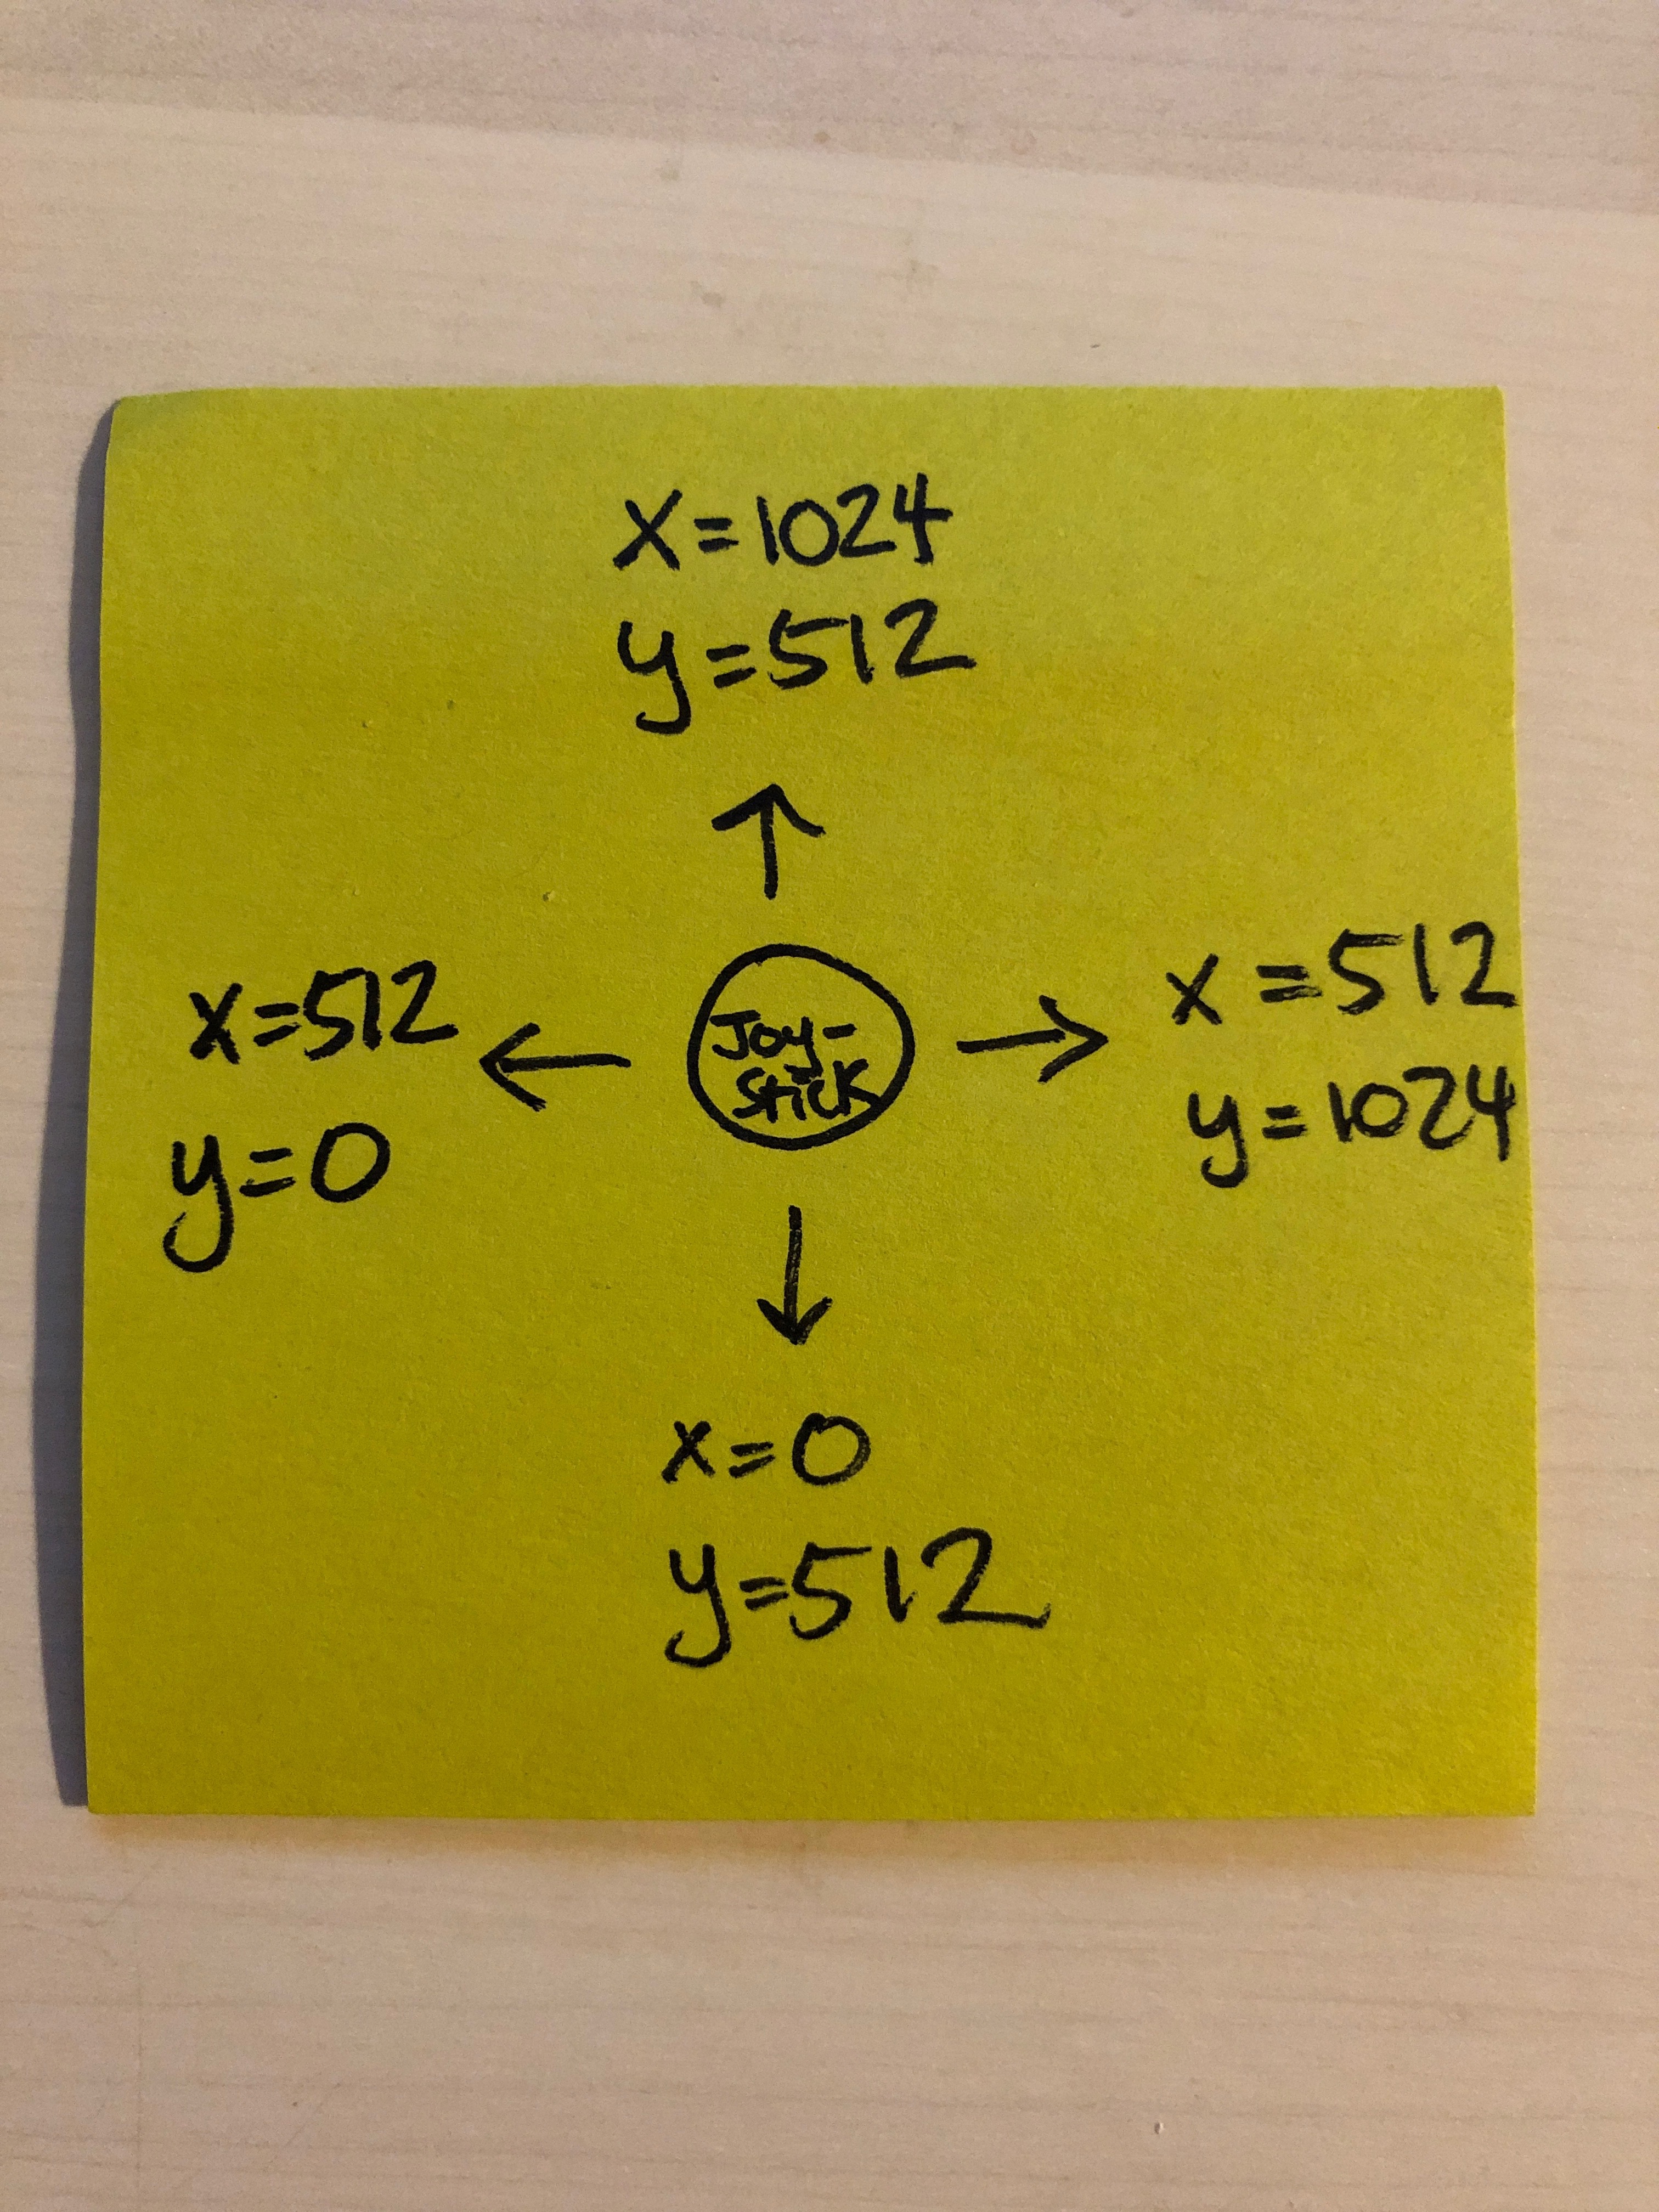 x=1024
y=512
x=512
y=0
Joy-
Stick
x=512
y=1024
x=0
y=512